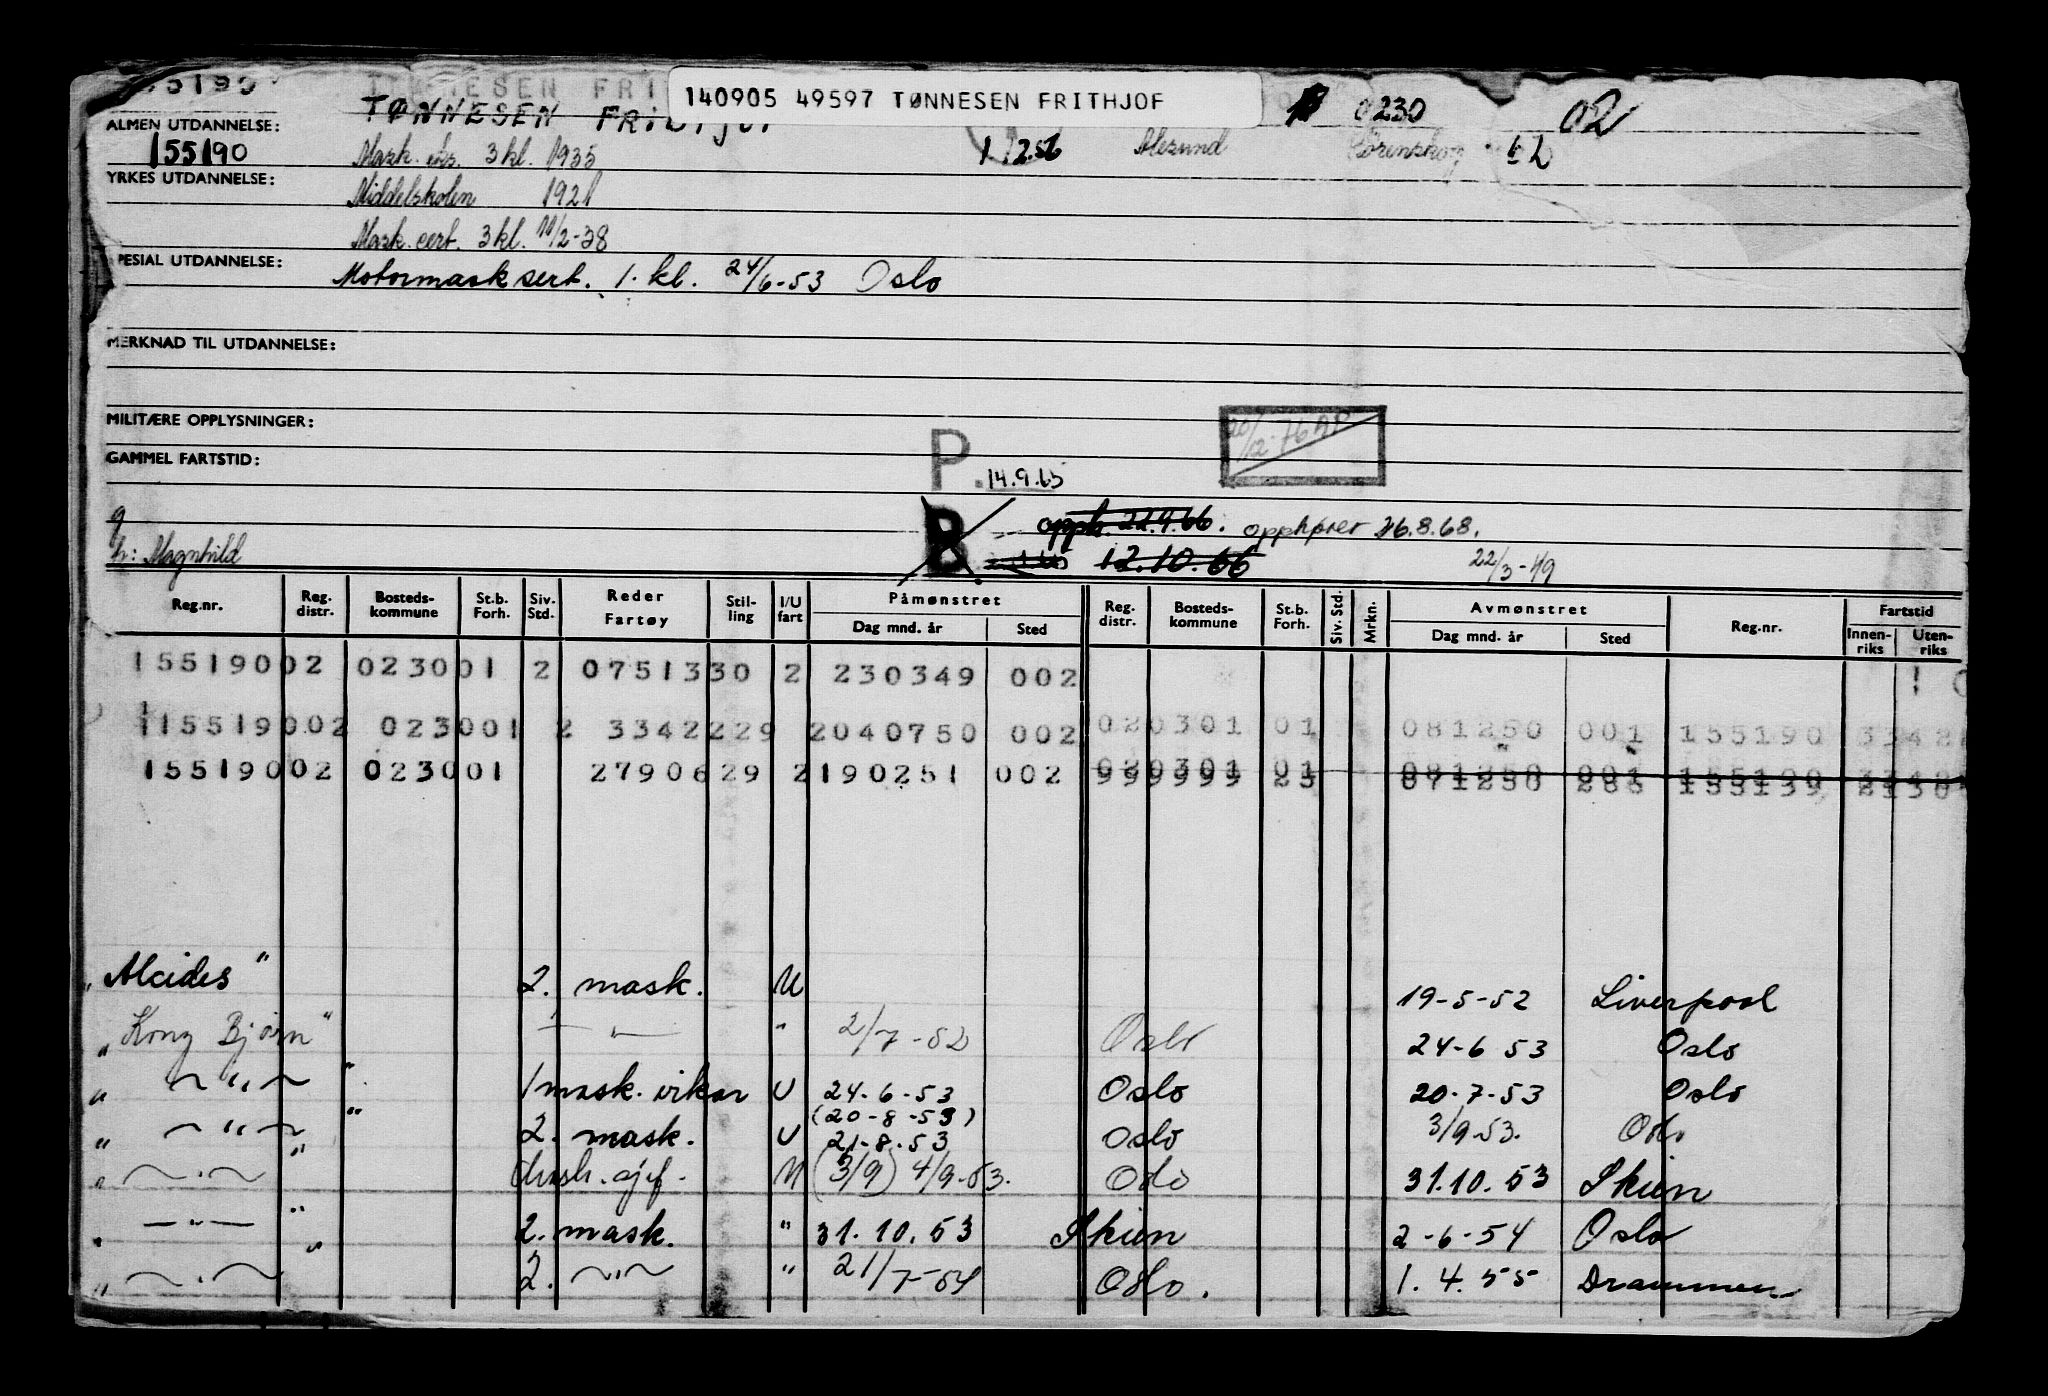 140905 49597 TØNNESEN FRITHJOF
TØNNESEN 0230 02
ALMEN UTDANNELSE:
155190 Mask. eks. 3 kl. 1935 Ålesund Lørenskog
YRKES UTDANNELSE:
Middelskolen 1921
Mask. cert. 3 kl. 11/2-38
PESIAL UTDANNELSE:
Motormask sert. 1. kl. 24/6-53 Oslo
MERKNAD TIL UTDANNELSE:
MILITÆRE OPPLYSNINGER:
GAMMEL FARTSTID:
P. 14.9.65
B opph. 22.9.66. opphører 26.8.68.
h: Magnhild 12.10.66 22/3-49
Reg.nr. Reg. distr. Bosteds-kommune St.b. Forh. Siv. Std. Reder Fartøy Stil-ling I/U fart Påmønstret Dag mnd. år Sted Reg. distr. Bosteds-kommune St.b. Forh. Siv. Std. Mrkn. Avmønstret Dag mnd. år Sted Reg.nr. Fartstid Innen-riks Uten-riks
15519002 023001 2 0751330 2 230349 002
15519002 023001 2 3342229 2040750 002 020301 01 081250 001 155190 3342
15519002 023001 2790629 2190251 002
"Alcides" 2. mask. U 19-5-52 Liverpool
"Kong Bjørn" — " — " 2/7-52 Oslo 24-6 53 Oslo
" — " — " 1 mask. vikar U 24-6-53 Oslo 20-7-53 Oslo
(20-8-53)
" — " — " 2. mask. U 21-8-53 Oslo 3/9-53. Oslo
" — " — " U (3/9) 4/9-53. Oslo 31.10.53 Skien
" — " — " 2. mask. " 31.10.53 Skien 2-6-54 Oslo
" — " — " 2. — " — " 21/7-54 Oslo. 1.4.55 Drammen